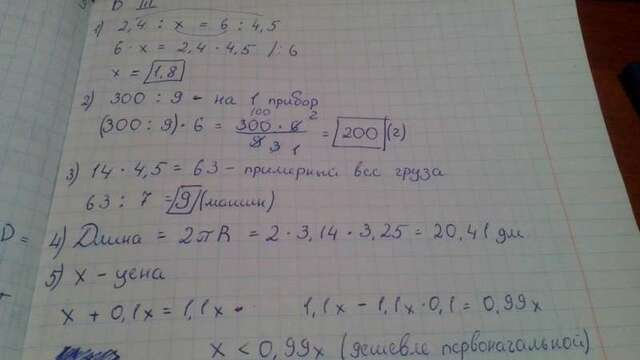 В III
1) 2,4 : x = 6 : 4,5
6 · x = 2,4 · 4,5 /: 6
x = 1,8
2) 300 : 9 - на 1 прибор
(300 : 9) · 6 = 300 · 6 / 9 = 200 (г)
100 2
3 1
3) 14 · 4,5 = 63 - примерный вес груза
63 : 7 = 9 (машин)
D = 4) Длина = 2πR = 2 · 3,14 · 3,25 = 20,41 дм
5) x - цена
x + 0,1x = 1,1x 1,1x - 1,1x · 0,1 = 0,99x
x < 0,99x (дешевле первоначальной)